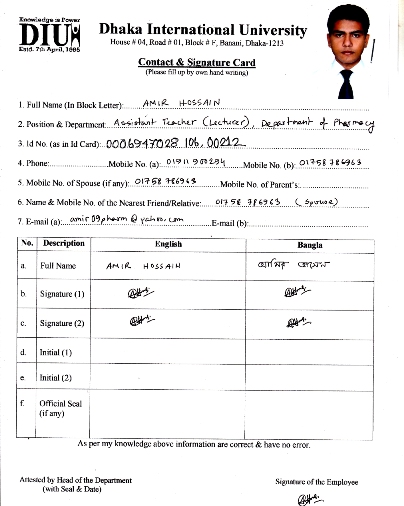 Knowledge is Power
DIU
Estd. 7th April, 1995
Dhaka International University
House # 04, Road # 01, Block # F, Banani, Dhaka-1213
Contact & Signature Card
(Please fill up by own hand writing)
1. Full Name (In Block Letter): AMIR HOSSAIN
2. Position & Department: Assistant Teacher (Lecturer), Department of Pharmacy
3. Id No. (as in Id Card): 0006947028 106, 00212
4. Phone: Mobile No. (a): 01911 900294 Mobile No. (b): 01758 786963
5. Mobile No. of Spouse (if any): 01758 786963 Mobile No. of Parent's:
6. Name & Mobile No. of the Nearest Friend/Relative: 01758 786963 (Spouse)
7. E-mail (a): amir09pharm@yahoo.com E-mail (b):
No. Description English Bangla
a. Full Name AMIR HOSSAIN আমির হোসেন
b. Signature (1)
c. Signature (2)
d. Initial (1)
e. Initial (2)
f. Official Seal
(if any)
As per my knowledge above information are correct & have no error.
Attested by Head of the Department
(with Seal & Date)
Signature of the Employee